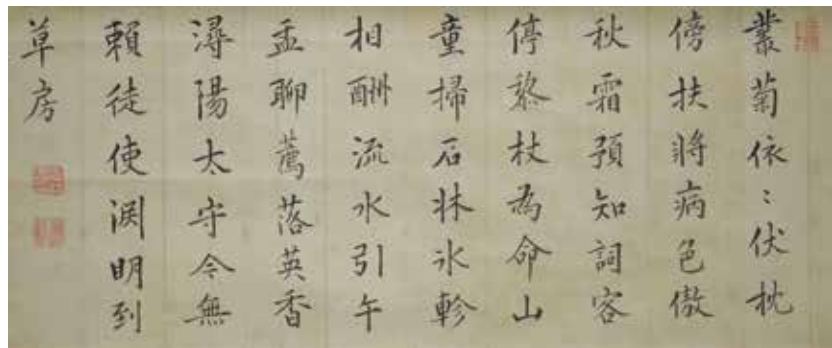 叢菊依〻伏枕
傍扶將病色傲
秋霜預知詞客
停黎杖為命山
童掃石牀氷軫
相酬流水引午
盂聊薦落英香
潯陽太守令無
賴徒使淵明到
草房